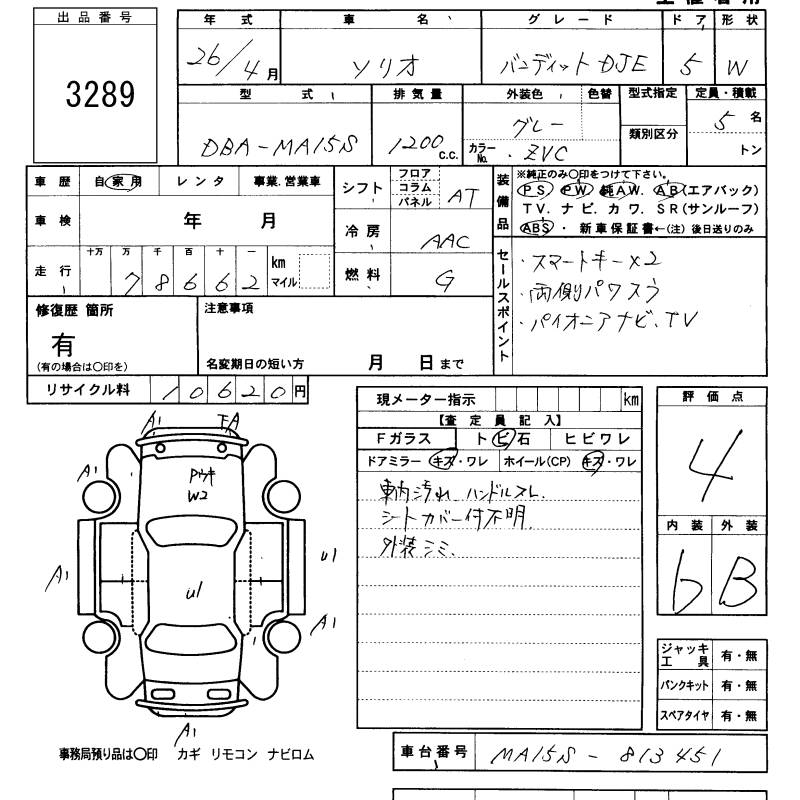 出品番号
3289
年式 車名 グレード ドア 形状
26/4月 ソリオ バンディット DJE 5 W
型式 排気量 外装色 色替 型式指定 定員・積載
DBA-MA15S 1200 c.c. グレー 5名
カラーNo. ZVC 類別区分 トン
車歴 自家用 レンタ 事業.営業車
車検 年 月
走行 十万 万 千 百 十 一
78662 km マイル
シフト フロア コラム パネル AT
冷房 AAC
燃料 G
装備品 ※純正のみ○印をつけて下さい。
PS PW 純AW. AB(エアバック)
TV. ナビ. カワ. SR(サンルーフ)
ABS ・ 新車保証書←(注) 後日送りのみ
セールスポイント
・スマートキーx2
・両側パワスラ
・パイオニアナビ、TV
修復歴 箇所
有
(有の場合は○印を)
注意事項
名変期日の短い方 月 日まで
リサイクル料 10620円
現メーター指示 km
【査定員記入】
Fガラス トビ石 ヒビワレ
ドアミラー キズ・ワレ ホイール(CP) キズ・ワレ
車内汚れ ハンドルスレ
シートカバー付不明
外装シミ
評価点
4
内装 外装
b B
A1
A1
W2
A1
U1
U1
A1
A1
ジャッキ工具 有・無
パンクキット 有・無
スペアタイヤ 有・無
事務局預り品は○印 カギ リモコン ナビロム
車台番号 MA15S-813451